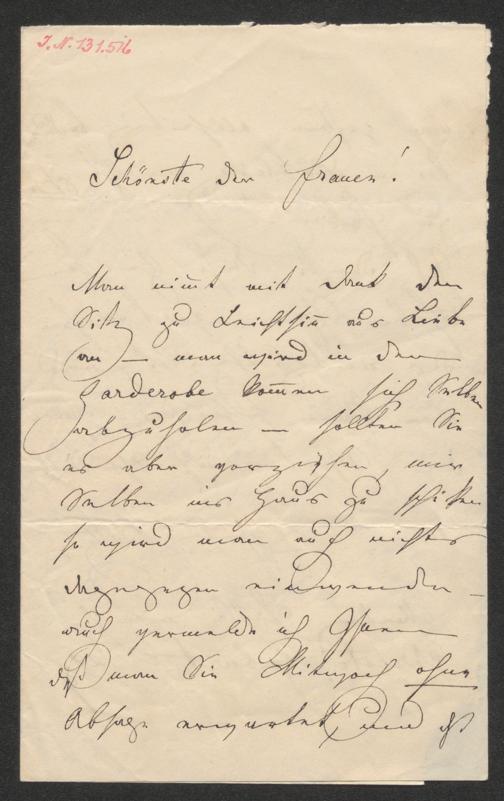 J. N. 131.516
Schönste der Frauen!
Man nim̅t mit Dank den
Sitz zu Leichtsin̅ aus Liebe
an – man wird in der
Garderobe kom̅en sich Selben
abzuholen – sollten Sie
es aber vorziehen, mir
Selben ins Haus zu schicken
so wird man auch nichts
dagegen einwenden –
auch vermelde ich Ihnen
daß man Sie Mittwoch ohne
Absage erwartet, und ist